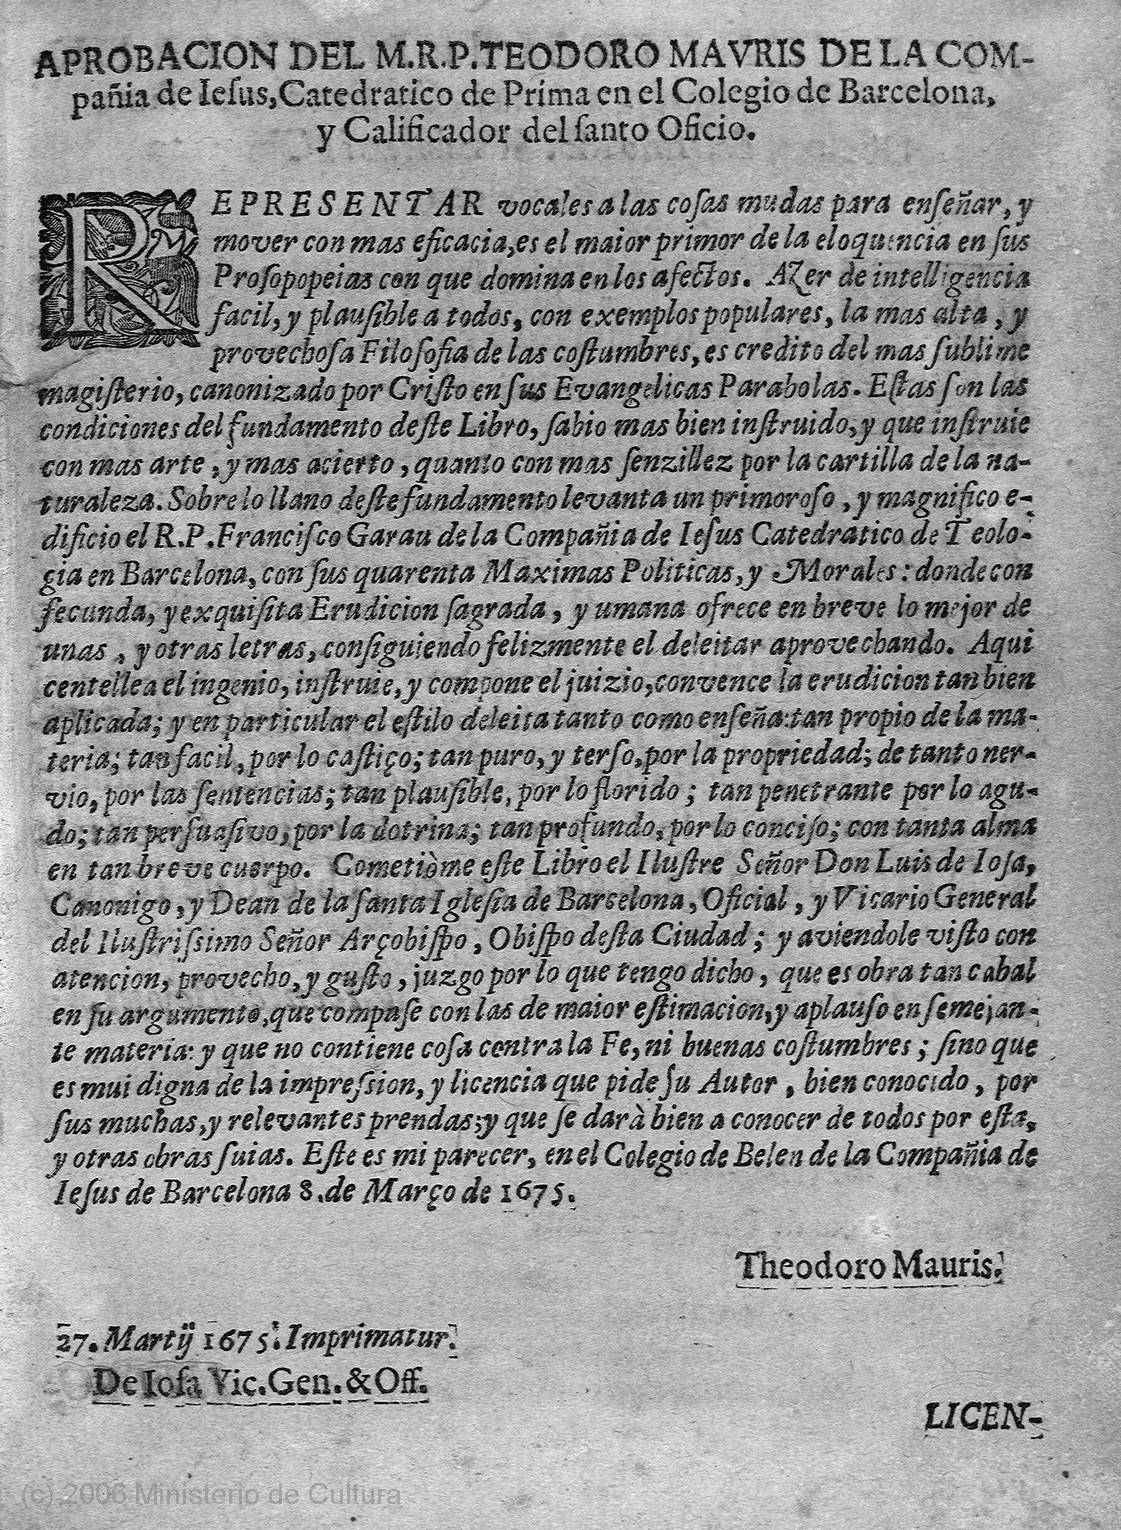 APROBACION DEL M.R.P.TEODORO MAVRIS DE LA COM-
pañia de Iesus,Catedratico de Prima en el Colegio de Barcelona,
y Calificador del santo Oficio.
REPRESENTAR vocales a las cosas mudas para enseñar, y
mover con mas eficacia,es el maior primor de la eloquencia en sus
Prosopopeias con que domina en los afectos. AZer de intelligencia
facil, y plausible a todos, con exemplos populares, la mas alta , y
provechosa Filosofia de las costumbres, es credito del mas sublime
magisterio, canonizado por Cristo en sus Evangelicas Parabolas. Estas son las
condiciones del fundamento deste Libro, sabio mas bien instruido,y que instruie
con mas arte , y mas acierto , quanto con mas senzillez por la cartilla de la na-
turaleza. Sobre lo llano deste fundamento levanta un primoroso , y magnifico e-
dificio el R.P.Francisco Garau de la Compañia de Iesus Catedratico de Teolo-
gia en Barcelona, con sus quarenta Maximas Politicas, y Morales: donde con
fecunda, y exquisita Erudicion sagrada , y umana ofrece en breve lo mejor de
unas , y otras letras, consiguiendo felizmente el deleitar aprovechando. Aqui
centellea el ingenio, instruie, y compone el juizio,convence la erudicion tan bien
aplicada; y en particular el estilo deleita tanto como enseña:tan propio de la ma-
teria; tan facil, por lo castiço; tan puro, y terso,por la propriedad; de tanto ner-
vio, por las sentencias; tan plausible, por lo florido ; tan penetrante por lo agu-
do; tan persuasivo, por la dotrina; tan profundo, por lo conciso; con tanta alma
en tan breve cuerpo. Cometiòme este Libro el Ilustre Señor Don Luis de Iosa,
Canonigo , y Dean de la santa Iglesia de Barcelona , Oficial , y Vicario General
del Ilustrissimo Señor Arçobispo , Obispo desta Ciudad ; y aviendole visto con
atencion, provecho, y gusto , juzgo por lo que tengo dicho , que es obra tan cabal
en su argumento,que compase con las de maior estimacion,y aplauso en semejan-
te materia: y que no contiene cosa contra la Fe, ni buenas costumbres ; sino que
es mui digna de la impression, y licencia que pide su Autor , bien conocido , por
sus muchas,y relevantes prendas;y que se darà bien a conocer de todos por esta,
y otras obras suias. Este es mi parecer, en el Colegio de Belen de la Compañia de
Iesus de Barcelona 8.de Março de 1675.
Theodoro Mauris.
27. Martij 1675. Imprimatur.
De Iosa Vic.Gen.&Off.
LICEN-
(c) 2006 Ministerio de Cultura